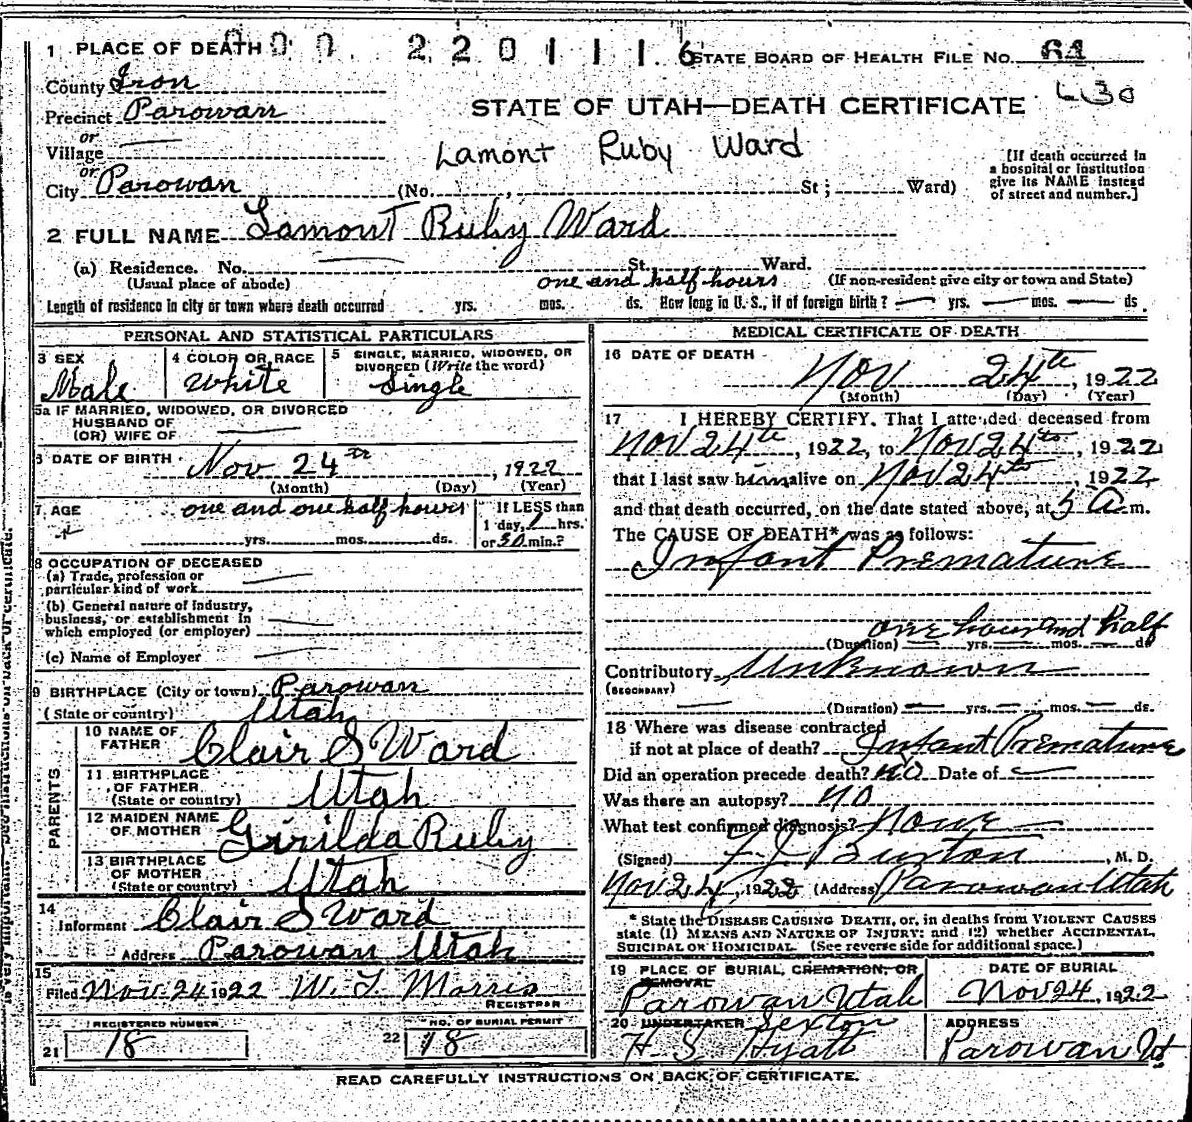 1 PLACE OF DEATH 000 2201116 STATE BOARD OF HEALTH FILE No. 61
County Iron
Precinct Parowan STATE OF UTAH—DEATH CERTIFICATE
or
Village Lamont Ruby Ward
or
City Parowan (No. , St; Ward)
[If death occurred in
a hospital or institution
give its NAME instead
of street and number.]
2 FULL NAME Lamont Ruby Ward
(a) Residence. No. St. Ward.
(Usual place of abode) one and half hours (If non-resident give city or town and State)
Length of residence in city or town where death occurred yrs. mos. ds. How long in U. S., if of foreign birth? — yrs. — mos. — ds
PERSONAL AND STATISTICAL PARTICULARS
3 SEX Male
4 COLOR OR RACE White
5 SINGLE, MARRIED, WIDOWED, OR
DIVORCED (Write the word)
Single
5a IF MARRIED, WIDOWED, OR DIVORCED
HUSBAND OF
(OR) WIFE OF —
6 DATE OF BIRTH Nov 24th, 1922
(Month) (Day) (Year)
7 AGE one and one half hours If LESS than
1 day, 1 hrs.
yrs. mos. ds. or 30 min.?
8 OCCUPATION OF DECEASED
(a) Trade, profession or
particular kind of work —
(b) General nature of industry,
business, or establishment in
which employed (or employer) —
(c) Name of Employer —
9 BIRTHPLACE (City or town) Parowan
(State or country) Utah
PARENTS
10 NAME OF
FATHER Clair S Ward
11 BIRTHPLACE
OF FATHER
(State or country) Utah
12 MAIDEN NAME
OF MOTHER Ruby
13 BIRTHPLACE
OF MOTHER
(State or country) Utah
14
Informent Clair S Ward
Address Parowan Utah
15
Filed Nov. 24 1922 W. T. Morris
REGISTRAR
REGISTERED NUMBER
21 18
NO. OF BURIAL PERMIT
22 18
MEDICAL CERTIFICATE OF DEATH
16 DATE OF DEATH
Nov 24th, 1922
(Month) (Day) (Year)
17 I HEREBY CERTIFY, That I attended deceased from
Nov 24th, 1922, to Nov 24th, 1922
that I last saw him alive on Nov 24th, 1922
and that death occurred, on the date stated above, at 5 a m.
The CAUSE OF DEATH* was as follows:
Infant Premature
one hour and half
(Duration) — yrs. — mos. — ds
Contributory Unknown
(SECONDARY)
— (Duration) — yrs. — mos. — ds.
18 Where was disease contracted
if not at place of death? Infant Premature
Did an operation precede death? No Date of —
Was there an autopsy? No
What test confirmed diagnosis? None
(Signed) Burton, M. D.
Nov 24, 1922 (Address) Parowan Utah
* State the DISEASE CAUSING DEATH, or, in deaths from VIOLENT CAUSES
state (1) MEANS AND NATURE OF INJURY; and (2) whether ACCIDENTAL,
SUICIDAL OR HOMICIDAL. (See reverse side for additional space.)
19 PLACE OF BURIAL, CREMATION, OR
REMOVAL
Parowan Utah
DATE OF BURIAL
Nov 24, 1922
20 UNDERTAKER Sexton
H. S. Hyatt
ADDRESS
Parowan Ut
READ CAREFULLY INSTRUCTIONS ON BACK OF CERTIFICATE.